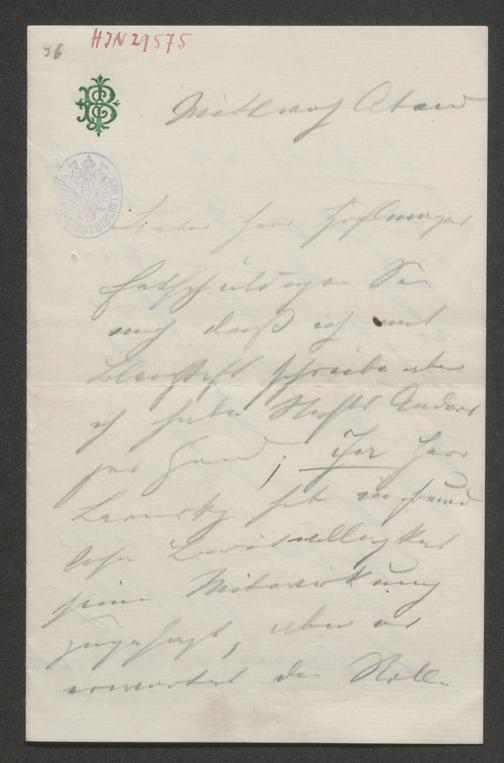 96
HIN 29575
Mittwoch Abend
Lieber Herr
Entschuldigen Sie
mich daß ich mit
Bleistift schreibe aber
ich habe Nichts Anderes
zur Hand; Ihr Herr
hat in freund
licher Bereitwilligkeit
seine Mitwirkung
zugesagt, aber er
erwartet die Rolle